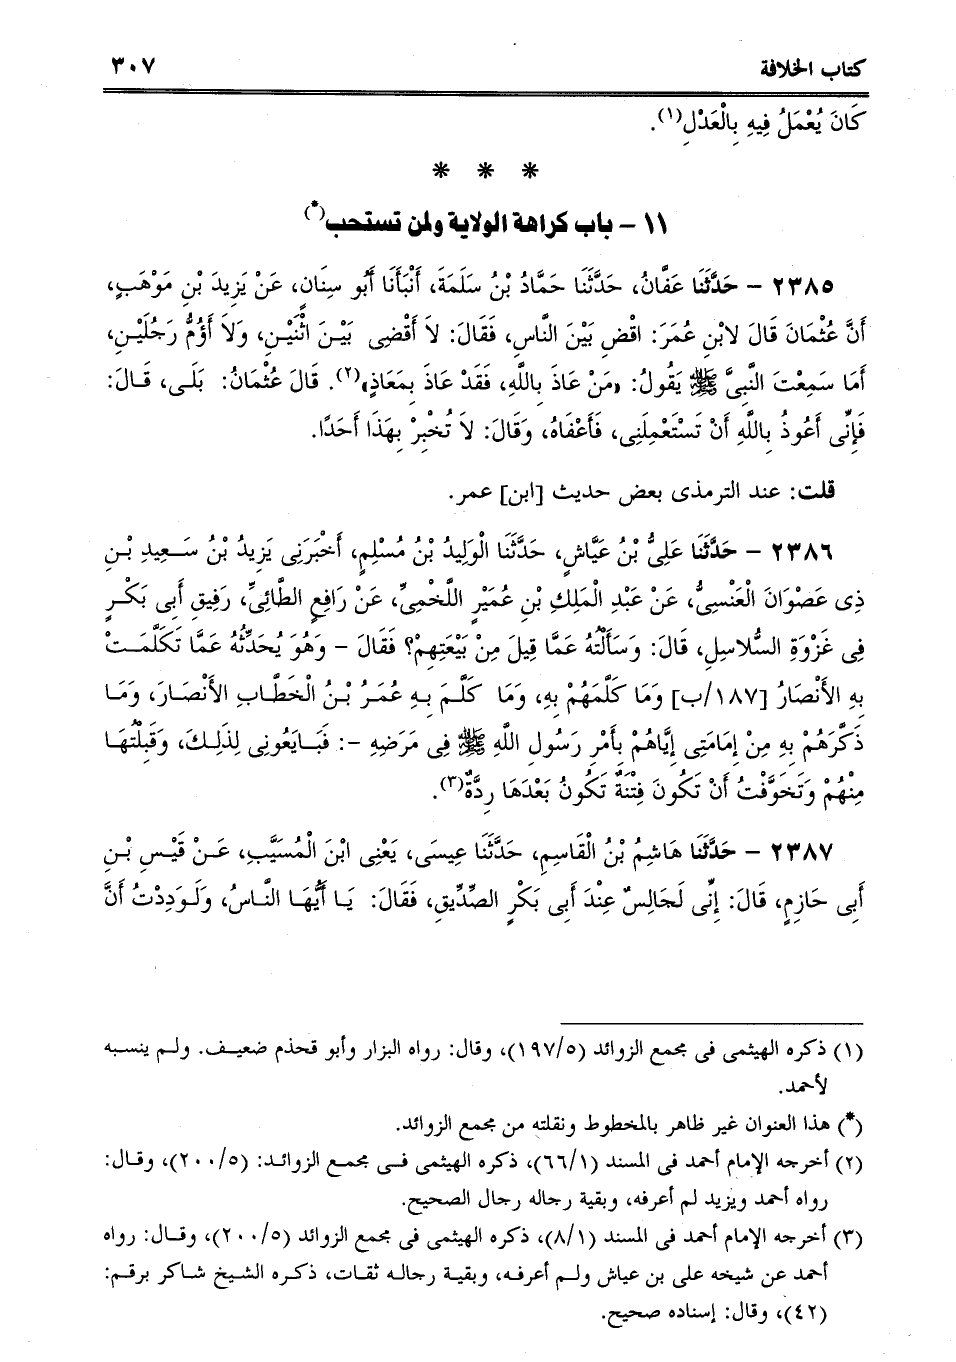 كتاب الخلافة ٣٠٧
كَانَ يُعْمَلُ فِيهِ بِالْعَدْلِ(١).
* * *
١١ - باب كراهة الولاية ولمن تستحب(*)
٢٣٨٥ - حَدَّثَنَا عَفَّانُ، حَدَّثَنَا حَمَّادُ بْنُ سَلَمَةَ، أَنْبَأَنَا أَبُو سِنَانٍ، عَنْ يَزِيدَ بْنِ مَوْهَبٍ،
أَنَّ عُثْمَانَ قَالَ لابْنِ عُمَرَ: اقْضِ بَيْنَ النَّاسِ، فَقَالَ: لاَ أَقْضِى بَيْنَ اثْنَيْنِ، وَلاَ أَؤُمُّ رَجُلَيْنِ،
أَمَا سَمِعْتَ النَّبِىَّ ﷺ يَقُولُ: «مَنْ عَاذَ بِاللَّهِ، فَقَدْ عَاذَ بِمَعَاذٍ»(٢). قَالَ عُثْمَانُ: بَلَى، قَالَ:
فَإِنِّى أَعُوذُ بِاللَّهِ أَنْ تَسْتَعْمِلَنِى، فَأَعْفَاهُ، وَقَالَ: لاَ تُخْبِرْ بِهَذَا أَحَدًا.
قلت: عند الترمذى بعض حديث [ابن] عمر.
٢٣٨٦ - حَدَّثَنَا عَلِىُّ بْنُ عَيَّاشٍ، حَدَّثَنَا الْوَلِيدُ بْنُ مُسْلِمٍ، أَخْبَرَنِى يَزِيدُ بْنُ سَعِيدِ بْنِ
ذِى عَصْوَانَ الْعَنْسِىُّ، عَنْ عَبْدِ الْمَلِكِ بْنِ عُمَيْرٍ اللَّخْمِىِّ، عَنْ رَافِعٍ الطَّائِىِّ، رَفِيقِ أَبِى بَكْرٍ
فِى غَزْوَةِ السُّلاسِلِ، قَالَ: وَسَأَلْتُهُ عَمَّا قِيلَ مِنْ بَيْعَتِهِمْ؟ فَقَالَ - وَهُوَ يُحَدِّثُهُ عَمَّا تَكَلَّمَتْ
بِهِ الأَنْصَارُ [١٨٧/ب] وَمَا كَلَّمَهُمْ بِهِ، وَمَا كَلَّمَ بِهِ عُمَرُ بْنُ الْخَطَّابِ الأَنْصَارَ، وَمَا
ذَكَّرَهُمْ بِهِ مِنْ إِمَامَتِى إِيَّاهُمْ بِأَمْرِ رَسُولِ اللَّهِ ﷺ فِى مَرَضِهِ -: فَبَايَعُونِى لِذَلِكَ، وَقَبِلْتُهَا
مِنْهُمْ وَتَخَوَّفْتُ أَنْ تَكُونَ فِتْنَةٌ تَكُونُ بَعْدَهَا رِدَّةٌ(٣).
٢٣٨٧ - حَدَّثَنَا هَاشِمُ بْنُ الْقَاسِمِ، حَدَّثَنَا عِيسَى، يَعْنِى ابْنَ الْمُسَيَّبِ، عَنْ قَيْسِ بْنِ
أَبِى حَازِمٍ، قَالَ: إِنِّى لَجَالِسٌ عِنْدَ أَبِى بَكْرٍ الصِّدِّيقِ، فَقَالَ: يَا أَيُّهَا النَّاسُ، وَلَوَدِدْتُ أَنَّ
(١) ذكره الهيثمى فى مجمع الزوائد (١٩٧/٥)، وقال: رواه البزار وأبو قحذم ضعيف. ولم ينسبه
لأحمد.
(*) هذا العنوان غير ظاهر بالمخطوط ونقلته من مجمع الزوائد.
(٢) أخرجه الإمام أحمد فى المسند (٦٦/١)، ذكره الهيثمى فى مجمع الزوائد: (٢٠٠/٥)، وقال:
رواه أحمد ويزيد لم أعرفه، وبقية رجاله رجال الصحيح.
(٣) أخرجه الإمام أحمد فى المسند (٨/١)، ذكره الهيثمى فى مجمع الزوائد (٢٠٠/٥)، وقال: رواه
أحمد عن شيخه على بن عياش ولم أعرفه، وبقية رجاله ثقات، ذكره الشيخ شاكر برقم:
(٤٢)، وقال: إسناده صحيح.